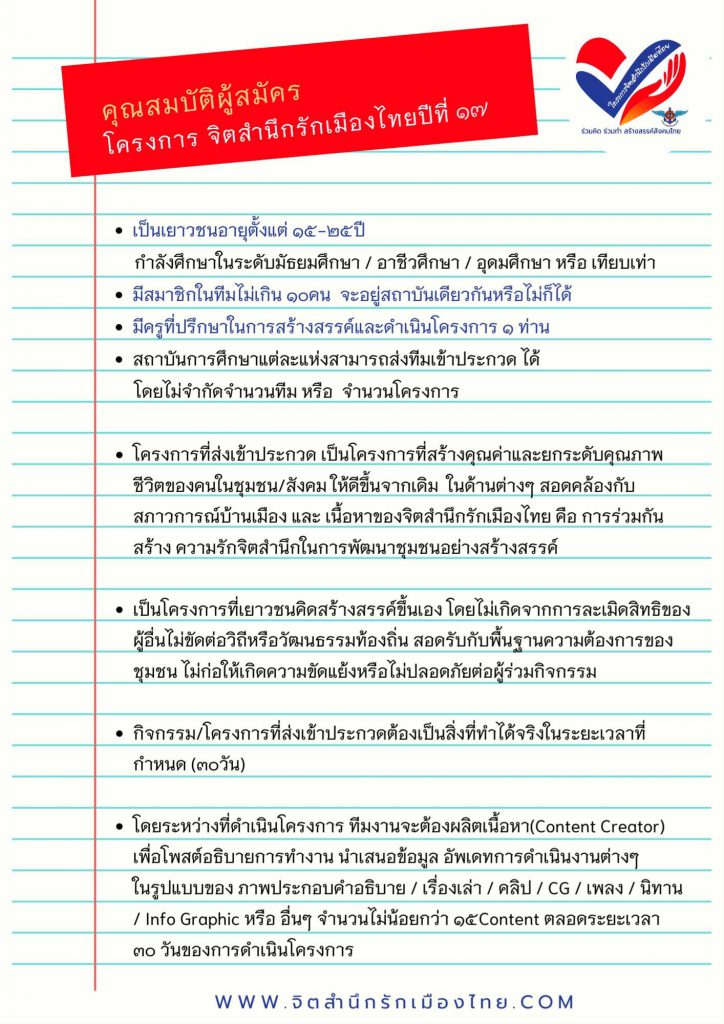 คุณสมบัติผู้สมัคร
โครงการ จิตสำนึกรักเมืองไทยปีที่ ๑๗
โครงการจิตสำนึกรักเมืองไทย
ร่วมคิด ร่วมทำ สร้างสรรค์สังคมไทย
• เป็นเยาวชนอายุตั้งแต่ ๑๕-๒๕ปี
กำลังศึกษาในระดับมัธยมศึกษา / อาชีวศึกษา / อุดมศึกษา หรือ เทียบเท่า
• มีสมาชิกในทีมไม่เกิน ๑๐คน จะอยู่สถาบันเดียวกันหรือไม่ก็ได้
• มีครูที่ปรึกษาในการสร้างสรรค์และดำเนินโครงการ ๑ ท่าน
• สถาบันการศึกษาแต่ละแห่งสามารถส่งทีมเข้าประกวด ได้
โดยไม่จำกัดจำนวนทีม หรือ จำนวนโครงการ
• โครงการที่ส่งเข้าประกวด เป็นโครงการที่สร้างคุณค่าและยกระดับคุณภาพ
ชีวิตของคนในชุมชน/สังคม ให้ดีขึ้นจากเดิม ในด้านต่างๆ สอดคล้องกับ
สภาวการณ์บ้านเมือง และ เนื้อหาของจิตสำนึกรักเมืองไทย คือ การร่วมกัน
สร้าง ความรักจิตสำนึกในการพัฒนาชุมชนอย่างสร้างสรรค์
• เป็นโครงการที่เยาวชนคิดสร้างสรรค์ขึ้นเอง โดยไม่เกิดจากการละเมิดสิทธิของ
ผู้อื่นไม่ขัดต่อวิถีหรือวัฒนธรรมท้องถิ่น สอดรับกับพื้นฐานความต้องการของ
ชุมชน ไม่ก่อให้เกิดความขัดแย้งหรือไม่ปลอดภัยต่อผู้ร่วมกิจกรรม
• กิจกรรม/โครงการที่ส่งเข้าประกวดต้องเป็นสิ่งที่ทำได้จริงในระยะเวลาที่
กำหนด (๓๐วัน)
• โดยระหว่างที่ดำเนินโครงการ ทีมงานจะต้องผลิตเนื้อหา(Content Creator)
เพื่อโพสต์อธิบายการทำงาน นำเสนอข้อมูล อัพเดทการดำเนินงานต่างๆ
ในรูปแบบของ ภาพประกอบคำอธิบาย / เรื่องเล่า / คลิป / CG / เพลง / นิทาน
/ Info Graphic หรือ อื่นๆ จำนวนไม่น้อยกว่า ๑๕Content ตลอดระยะเวลา
๓๐ วันของการดำเนินโครงการ
WWW.จิตสำนึกรักเมืองไทย.COM